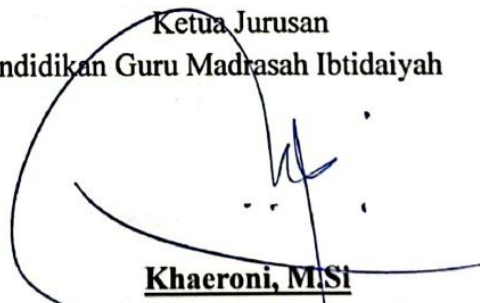 Ketua Jurusan
ndidikan Guru Madrasah Ibtidaiyah
Khaeroni, M.Si